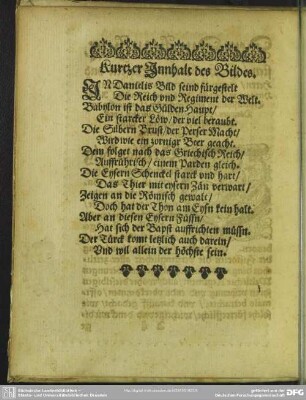 Kurtzer Innhalt des Bildes.
IN Danielis Bild seind fürgestelt
Die Reich vnd Regiment der Welt.
Babylon ist das Gülden Haupt/
Ein starcker Löw/ der viel beraubt.
Die Silbern Brust/ der Perser Macht/
Wird wie ein zornigr Beer geacht.
Dem folget nach das Griechisch Reich/
Auffrührisch/ einem Parden gleich.
Die Eysern Schenckel starck vnd hart/
Das Thier mit eysern Zän verwart/
Zeigen an die Römisch gewalt/
Doch hat der Thon am Eysn kein halt.
Aber an diesen Eysern Füssn/
Hat sich der Bapst auffrichten müssn.
Der Türck komt letzlich auch darein/
Vnd wil allein der höchste sein.